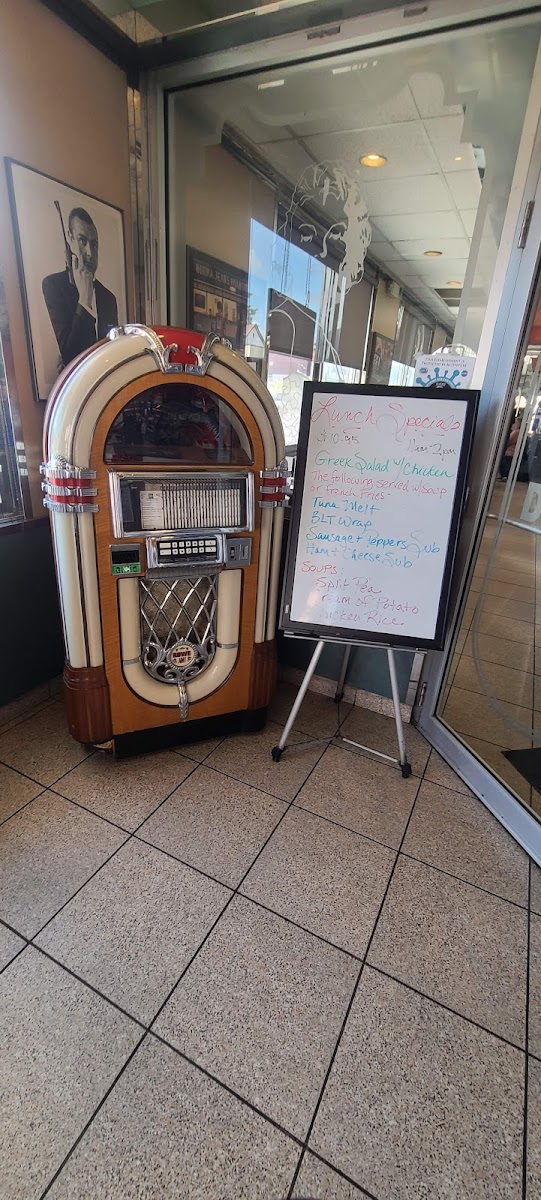 Lunch Specials
$10.95
11am-3pm
Greek Salad w/Chicken
The following served w/soup
or french fries
Tuna Melt
BLT Wrap
Sausage + Peppers Sub
Ham + Cheese Sub
Soups:
Split Pea
of Potato
Rice